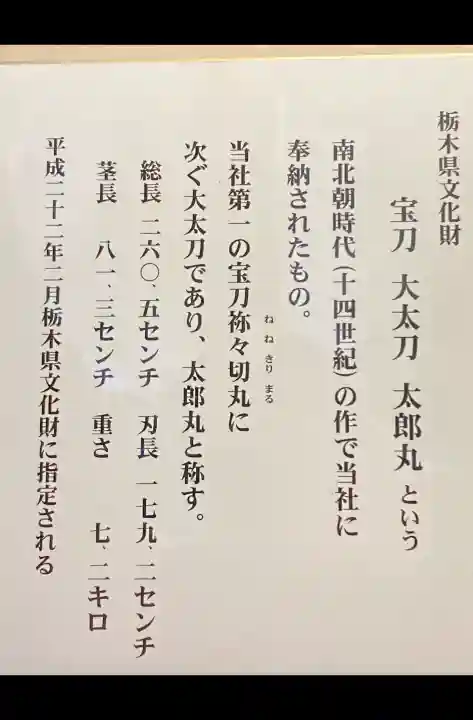 栃木県文化財
宝刀 大太刀 太郎丸という
南北朝時代(十四世紀)の作で当社に
奉納されたもの。
当社第一の宝刀祢々切丸に
ねねきりまる
次ぐ大太刀であり、太郎丸と称す。
総長 二六〇、五センチ 刃長 一七九、二センチ
茎長 八一、三センチ 重さ 七、二キロ
平成二十二年二月栃木県文化財に指定される